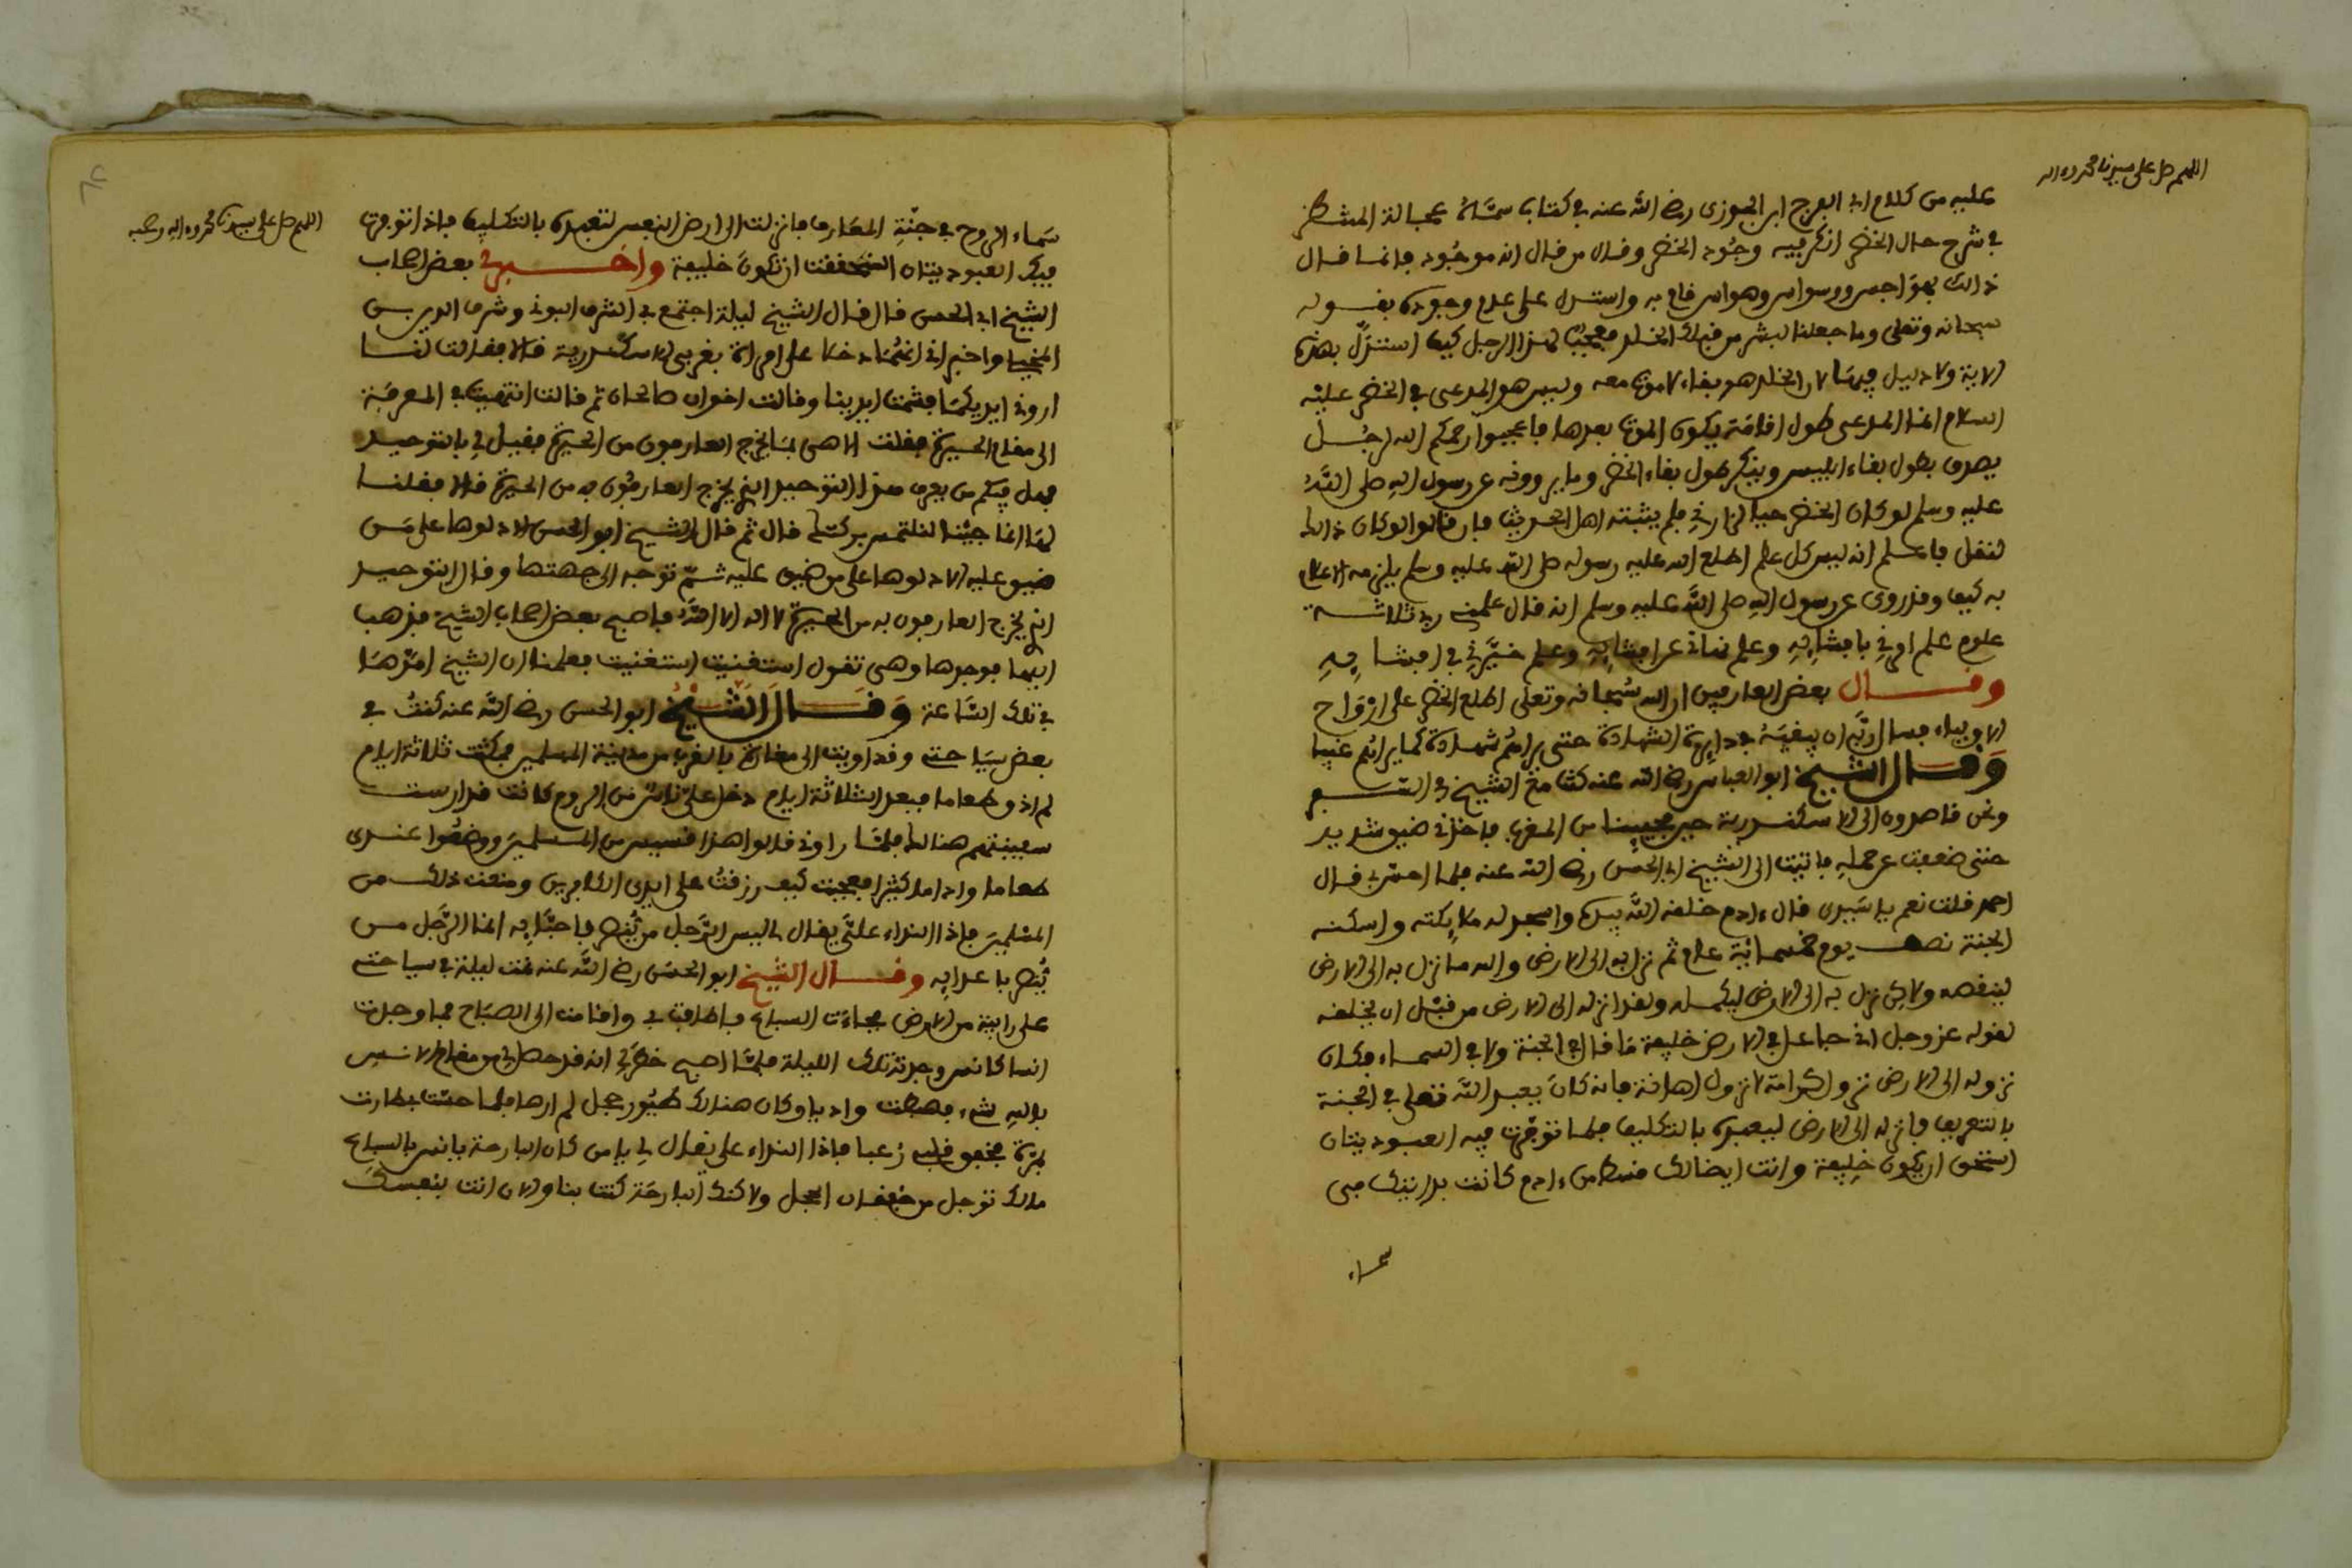 اللهم صل على سيدنا محمد واله
عليه من كلام ابي الفرج ابن الجوزى رضي الله عنه في كتاب سماه عجالة المنتظر
في شرح حال الخضر انكر فيه وجود الخضر وقال من قال انه موجود فانما قال
ذالك لهواجس ووسواس وهواس قام به واستدل على عدم وجوده بقوله
سبحانه وتعلى وما جعلنا لبشر من قبلك الخلد فعجبا لهذا الرجل كيف استدل بهذه
الاية ولا دليل فيها لان الخلد هو بقاء لا موت معه وليس هو المدعى في الخضر عليه
السلام انما المدعى طول اقامة يكون الموت بعدها فاعجبوا رحمكم الله لرجل
يصدق بطول بقاء ابليس وينكر طول بقاء الخضر وما يروونه عن رسول الله صلى الله
عليه وسلم لو كان الخضر حيا لزارني فلم يثبته اهل الحديث فان قالوا لو كان ذالك
لنقل فاعلم انه ليس كل علم اطلع الله عليه رسوله صلى الله عليه وسلم يلزمه الاعلام
به كيف وقد روى عن رسول الله صلى الله عليه وسلم انه قال علمني ربي ثلاثة
علوم علم امرني بافشايه وعلم نهاني عن افشايه وعلم خيرني في افشايه
وقال بعض العارفين ان الله سبحانه وتعلى اطلع الخضر على ارواح
الاولياء فسال ربه ان يبقيه في دايرة الشهادة حتى يراهم شهادة كما يراهم غيبا
وقال الشيخ ابو العباس رضي الله عنه كنت مع الشيخ في السفر
ونحن قاصدون الى الاسكندرية حين مجيينا من المغرب فاخذني ضيق شديد
حتى ضعفت عن حمله فاتيت الى الشيخ ابي الحسن رضي الله عنه فلما احس بي قال
احمد قلت نعم يا سيدى قال ءادم خلقه الله بيده واسجد له ملايكته واسكنه
الجنة نصف يوم خمسماية عام ثم نزل به الى الارض والله ما نزل به الى الارض
لينقصه ولاكن نزل به الى الارض ليكمله ولقد انزله الى الارض من قبل ان يخلقه
لقوله عز وجل اني جاعل في الارض خليفة ما قال في الجنة ولا في السماء فكان
نزوله الى الارض نزول كرامة لا نزول اهانة فانه كان يعبد الله تعلى في الجنة
بالتعريف فانزله الى الارض ليعبده بالتكليف فلما توفرت فيه العبوديتان
استحق ان يكون خليفة وانت ايضا لك قسط من ءادم كانت بدايتك في
سماء
اللهم صل على سيدنا محمد واله وصحبه
سماء الروح في جنة المعارف فانزلت الى ارض النفس لتعبده بالتكليف فاذا توفرت
فيك العبوديتان استحققت ان تكون خليفة واخبرني بعض اصحاب
الشيخ ابي الحسن قال قال الشيخ ليلة اجتمع بي الشرف البوني وشرف الدين بن
واخبراني انهما دخلا على امراة بغربي الاسكندرية قالا فقالت لنا
اروني ايديكما فشمت ايدينا وقالت اخوان صالحان ثم قالت انتهيت في المعرفة
الى مقام الحيرة فقلت الاهى بما يخرج العارفون من الحيرة فقيل لي بالتوحيد
فهل فيكم من يعرف هذا التوحيد الذي يخرج العارفون به من الحيرة قالا فقلنا
لها انما جينا لنلتمس بركتك قال ثم قال الشيخ ابو الحسن الا دلوها على من
ضيق عليه الا دلوها على من ضيق عليه ثم توجه الى جهتها وقال التوحيد
الذي يخرج العارفون به من الحيرة لا اله الا الله فاصبح بعض اصحاب الشيخ فذهب
اليها فوجدها وهى تقول استغنيت استغنيت فعلمنا ان الشيخ امدها
في تلك الساعة وقال الشيخ ابو الحسن رضي الله عنه كنت في
بعض سياحتي وقد اويت الى مغارة بالقرب من مدينة المسلمين فمكثت ثلاثة ايام
لم اذق طعاما فبعد الثلاثة ايام دخل علي ناس من الروم كانت قد ارست
سفينتهم هنالك فلما راوني قالوا هذا قسيس من المسلمين ووضعوا عندى
طعاما واداما كثيرا فعجبت كيف رزقت على ايدى الكافرين ومنعت ذلك من
المسلمين فاذا النداء علي يقال لي ليس الرجل من ينصر باحبابه انما الرجل من
ينصر باعدايه وقال الشيخ ابو الحسن رضي الله عنه نمت ليلة في سياحتي
على رابية من الارض فجاءت السباع فاطافت بي واقامت الى الصباح فما وجدت
انسا كانس وجدته تلك الليلة فلما اصبح خطر لي انه قد حصل لي من مقام الانس
بالله شيء فهبطت واديا وكان هنالك طيور حجل لم ارها فلما احست بي طارت
بمرة فخفق قلبي رعبا فاذا النداء علي يقال لي يا من كان البارحة يانس بالسباع
مالك توجل من خفقان الحجل ولاكنك البارحة كنت بنا والان انت بنفسك